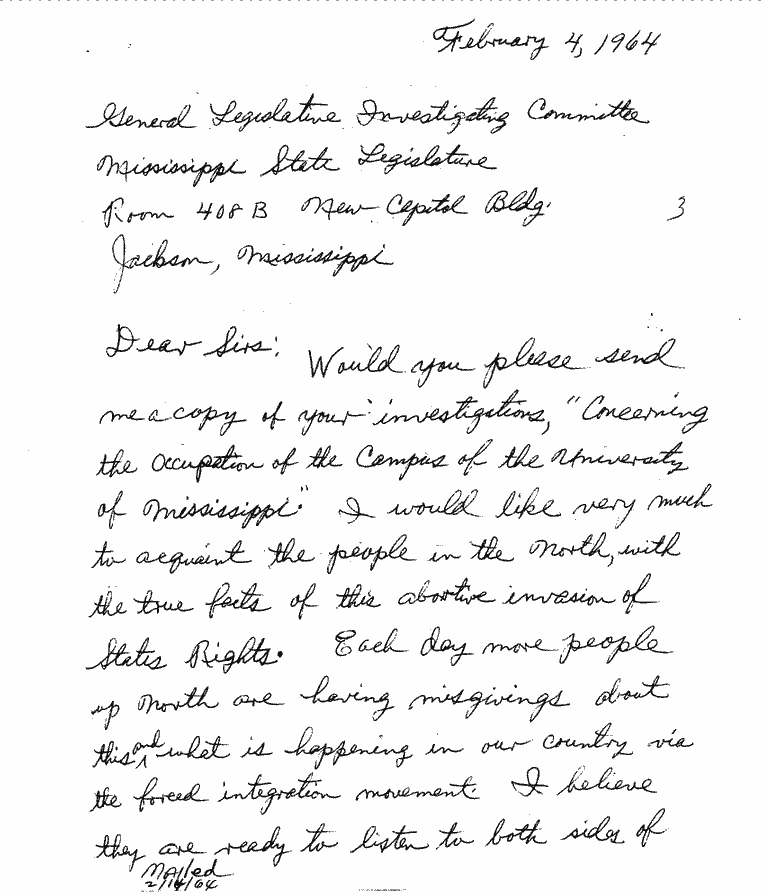 February 4, 1964
General Legislative Investigating Committee
Mississippi State Legislature
Room 408 B New Capitol Bldg.
3
Jackson, Mississippi
Dear Sirs:
Would you please send
me a copy of your investigations, "Concerning
the Occupation of the Campus of the University
of Mississippi." I would like very much
to acquaint the people in the North, with
the true facts of this abortive invasion of
States Rights. Each day more people
up North are having misgivings about
this and what is happening in our country via
the forced integration movement. I believe
they are ready to listen to both sides of
Mailed
2/14/64